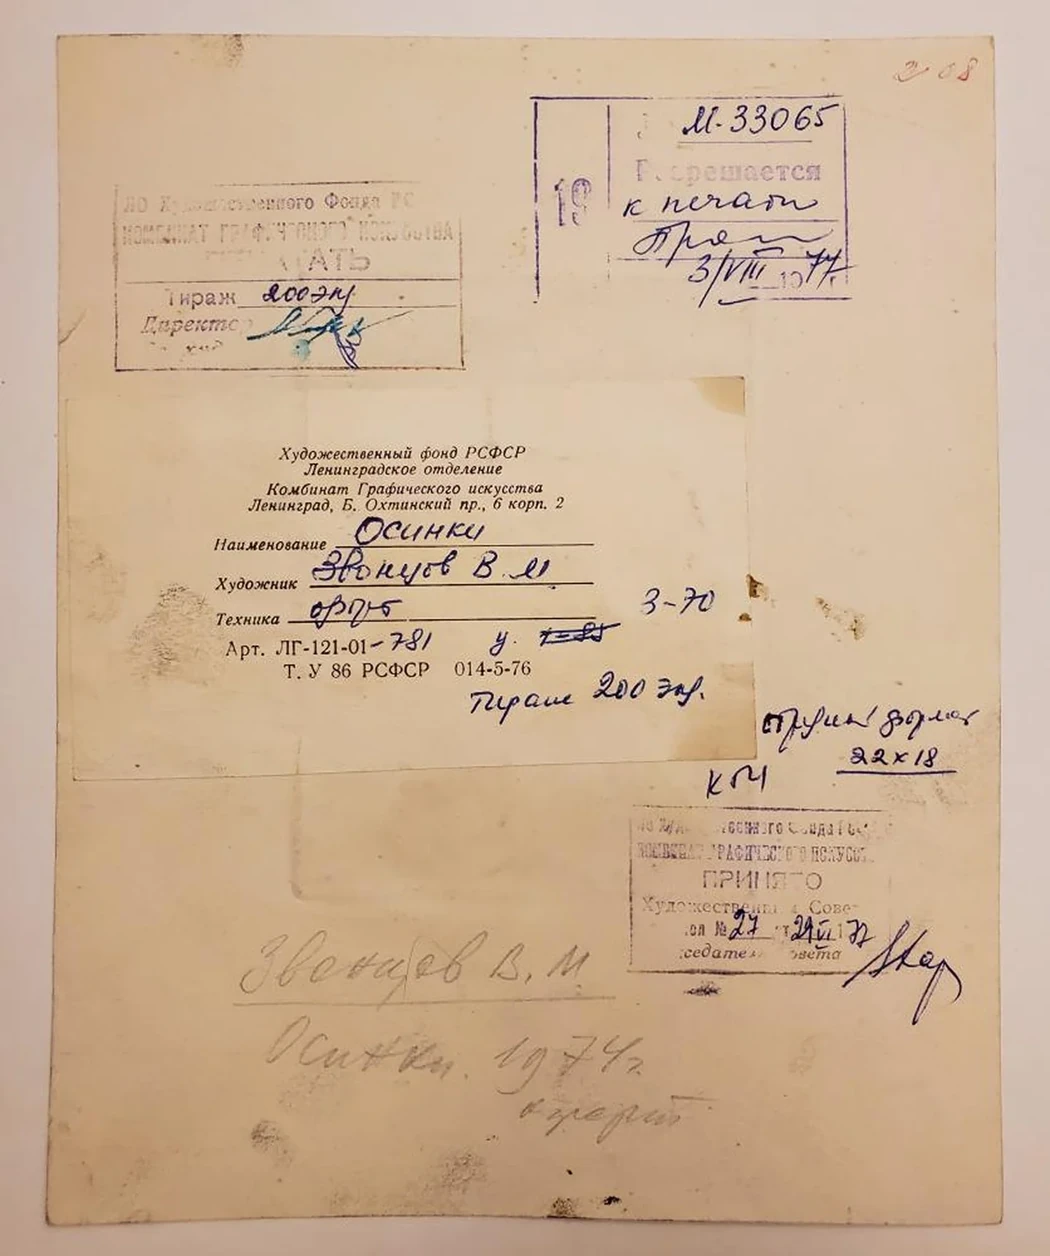 2 08
М-33065
Разрешается
19
к печати
3/VIII 1977 г.
ЛО Художественного Фонда РС
КОМБИНАТ ГРАФИЧЕСКОГО ИСКУССТВА
АТЬ
Тираж 200 экз
Директор
Художественный фонд РСФСР
Ленинградское отделение
Комбинат Графического искусства
Ленинград, Б. Охтинский пр., 6 корп. 2
Наименование Осинки
Художник Звонцов В. М
Техника офорт
3-70
Арт. ЛГ-121-01-781 у.
Т. У 86 РСФСР 014-5-76
Тираж 200 экз.
формат
22х18
ЛО Художественного Фонда РС
КОМБИНАТ ГРАФИЧЕСКОГО ИСКУССТ
ПРИНЯТО
Художественны Сове
ол № 27 от 29 VI 1977
седатель Совета
Звонцов В. М
Осинки. 1974г.
офорт